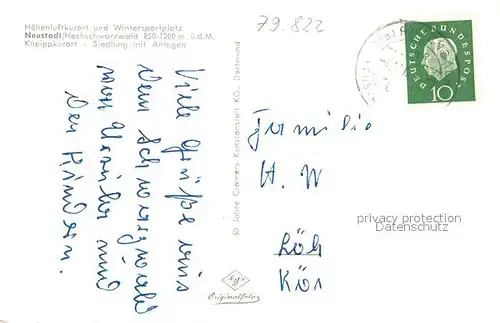 Höhenluftkurort und Wintersportplatz
Neustadt/Hochschwarzwald 850-1200 m ü.d.M.
Kneippkurort - Siedlung mit Anlagen
79.822
DEUTSCHE BUNDESPOST
10
Viele Grüße aus
dem Schwarzwald
von Ursula und
den Kindern.
50 Jahre Cramers Kunstanstalt KG., Dortmund
Agfa
Originalfoto
Familie
H. W
Löh
Kör
privacy protection
Datenschutz